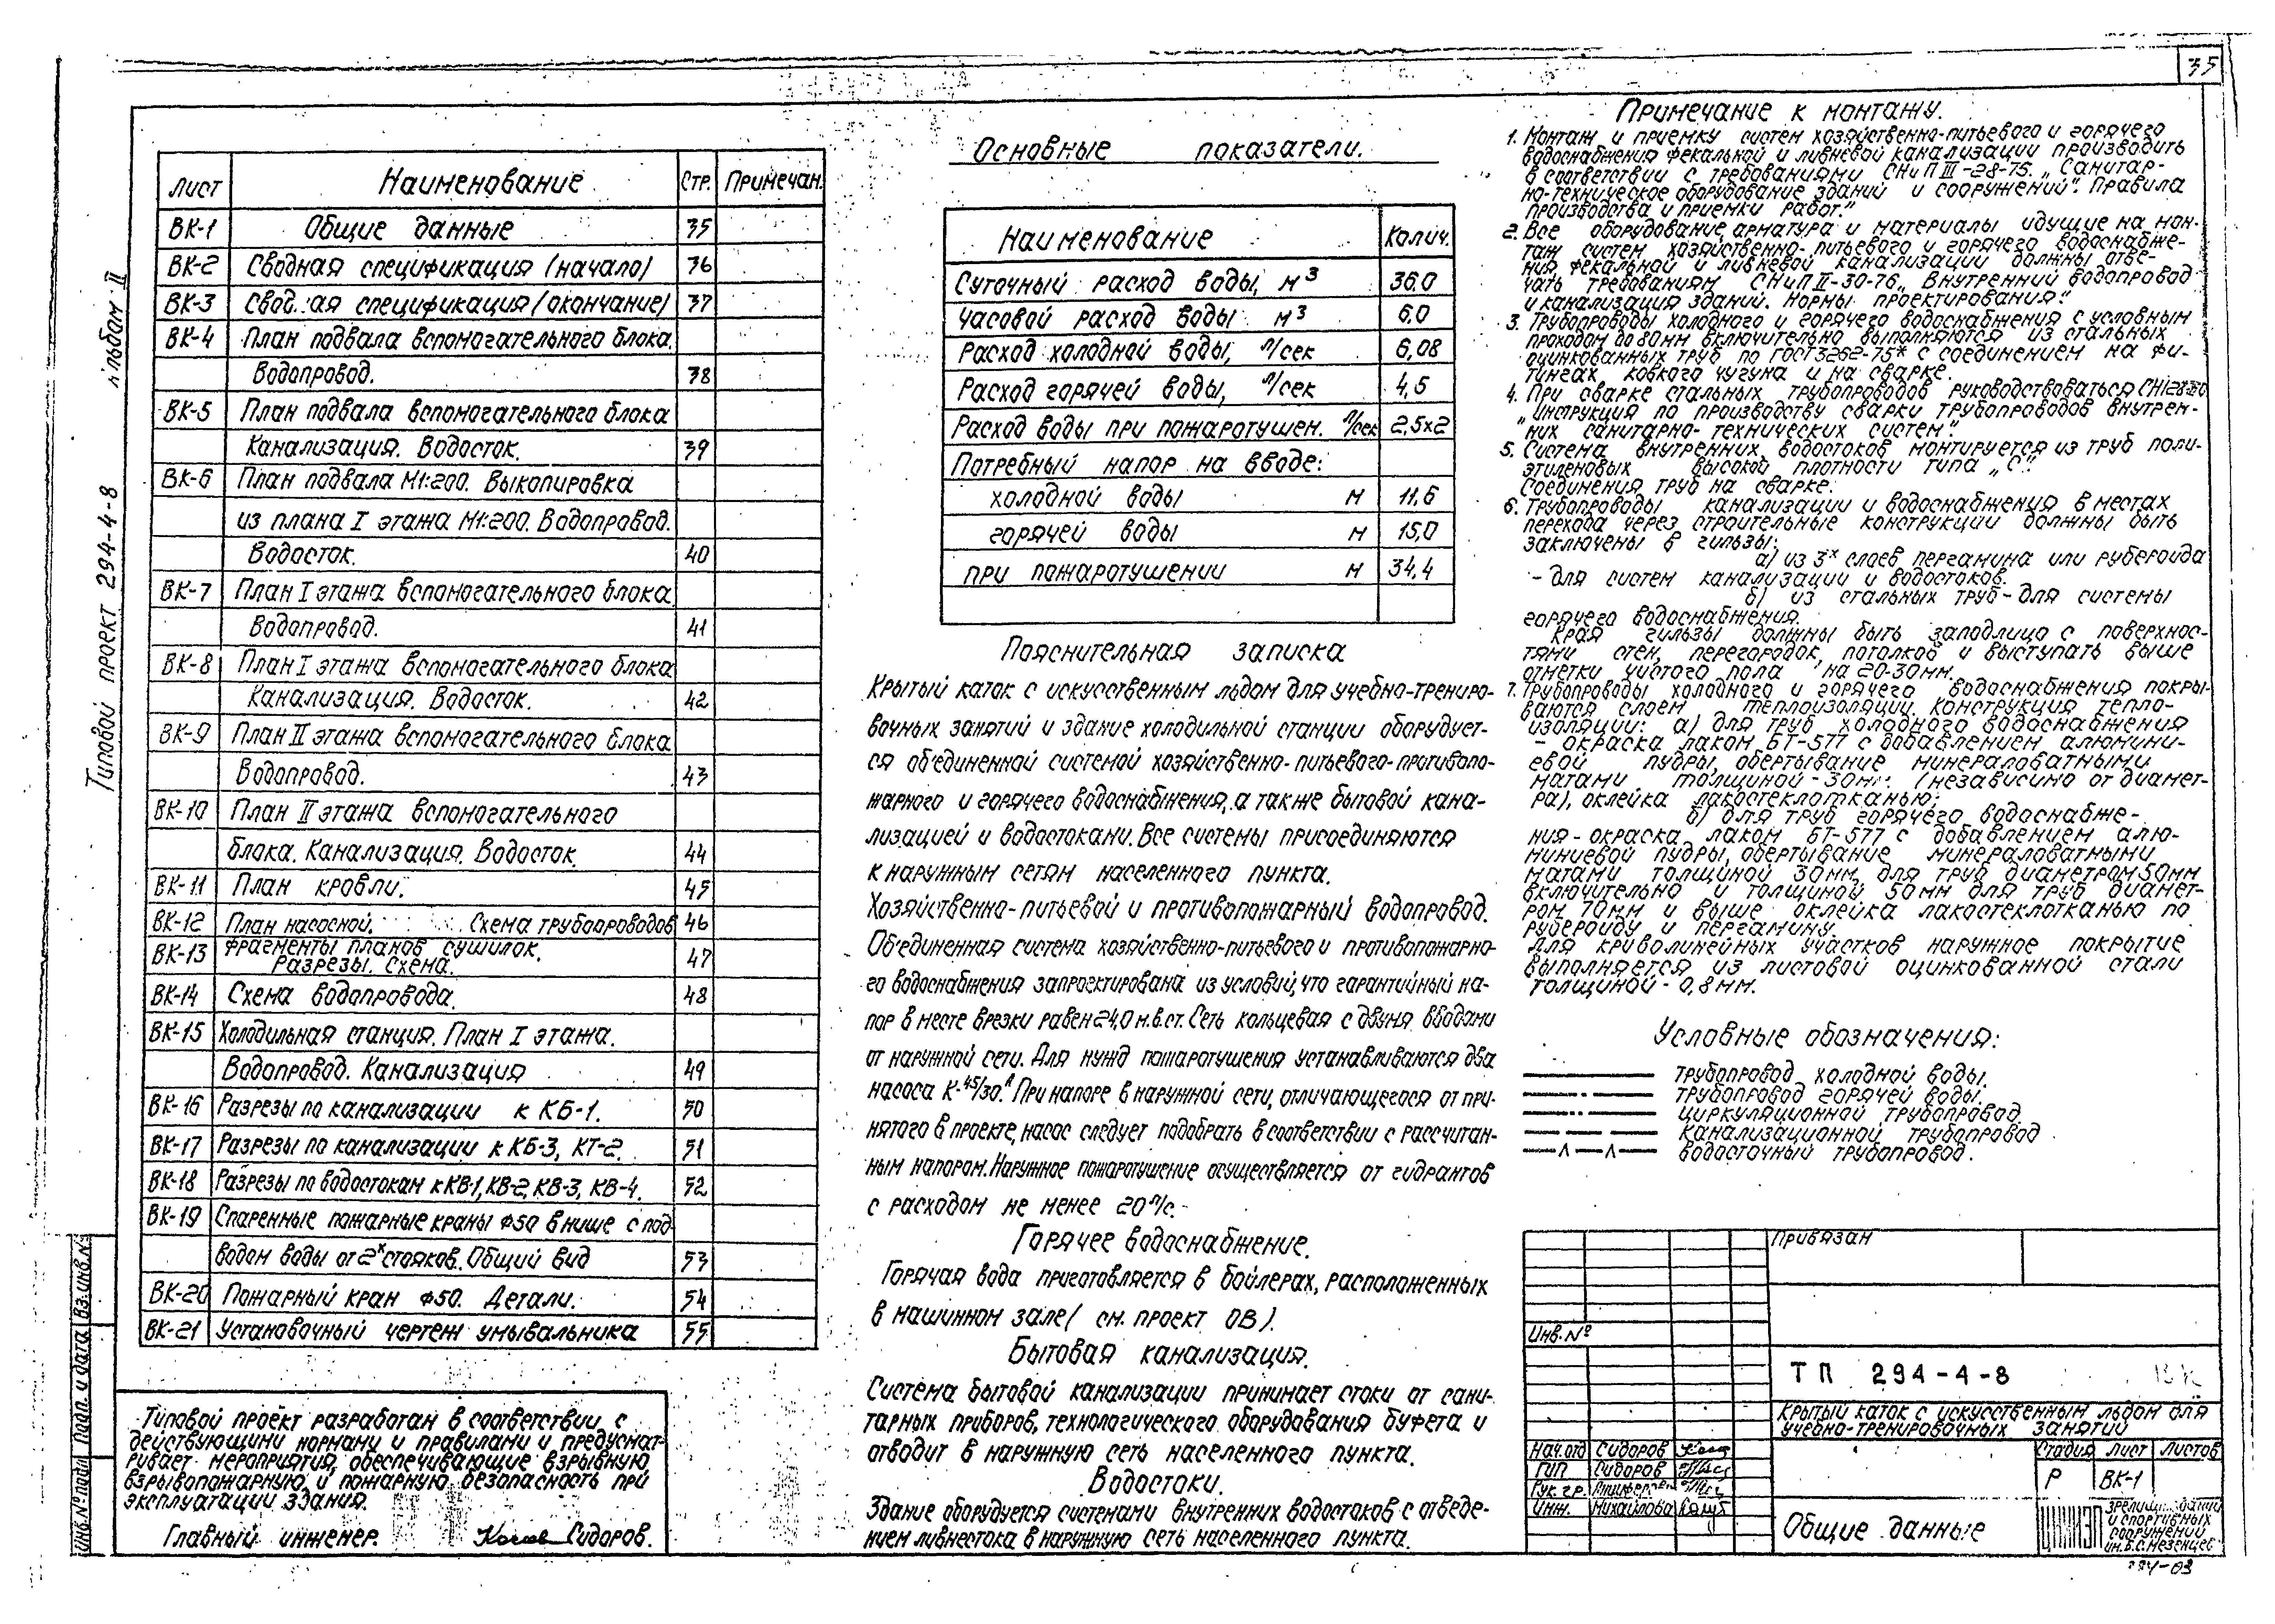 35
Альбом II
Типовой проект 294-4-8
Лист Наименование Стр. Примечан.
ВК-1 Общие данные 35
ВК-2 Сводная спецификация (начало) 36
ВК-3 Свод ая спецификация (окончание) 37
ВК-4 План подвала вспомогательного блока.
Водопровод. 38
ВК-5 План подвала вспомогательного блока
Канализация. Водосток. 39
ВК-6 План подвала М1:200. Выкопировка
из плана I этажа М1:200. Водопровод.
Водосток. 40
ВК-7 План I этажа вспомогательного блока
Водопровод. 41
ВК-8 План I этажа вспомогательного блока
Канализация. Водосток. 42
ВК-9 План II этажа вспомогательного блока
Водопровод. 43
ВК-10 План II этажа вспомогательного
блока. Канализация. Водосток. 44
ВК-11 План кровли. 45
ВК-12 План насосной. Схема трубопроводов 46
ВК-13 Фрагменты планов сушилок.
Разрезы. Схема. 47
ВК-14 Схема водопровода. 48
ВК-15 Холодильная станция. План I этажа.
Водопровод. Канализация 49
ВК-16 Разрезы по канализации к КБ-1. 50
ВК-17 Разрезы по канализации к КБ-3, КТ-2. 51
ВК-18 Разрезы по водостокам к КВ-1, КВ-2, КВ-3, КВ-4. 52
ВК-19 Спаренные пожарные краны Ф50 в нише с под-
водом воды от 2х стояков. Общий вид 53
ВК-20 Пожарный кран Ф50. Детали. 54
ВК-21 Установочный чертеж умывальника 55
Типовой проект разработан в соответствии с
действующими нормами и правилами и предусмат-
ривает мероприятия, обеспечивающие взрывную
взрывопожарную и пожарную безопасность при
эксплуатации здания.
Главный инженер. Сидоров.
Инв.№ подл. Подп. и дата Вз.инв.№
Основные показатели.
Наименование Колич.
Суточный расход воды, м³ 36,0
Часовой расход воды м³ 6,0
Расход холодной воды, л/сек 6,08
Расход горячей воды, л/сек 4,5
Расход воды при пожаротушен. л/сек 2,5х2
Потребный напор на вводе:
холодной воды м 11,6
горячей воды м 15,0
при пожаротушении м 34,4
Пояснительная записка
Крытый каток с искусственным льдом для учебно-трениро-
вочных занятий и здание холодильной станции оборудует-
ся объединенной системой хозяйственно-питьевого-противопо-
жарного и горячего водоснабжения, а также бытовой кана-
лизацией и водостоками. Все системы присоединяются
к наружным сетям населенного пункта.
Хозяйственно-питьевой и противопожарный водопровод.
Объединенная система хозяйственно-питьевого и противопожарно-
го водоснабжения запроектирована из условий, что гарантийный на-
пор в месте врезки равен 24,0 м.в.ст. Сеть кольцевая с двумя вводами
от наружной сети. Для нужд пожаротушения устанавливаются два
насоса К-45/30.А При напоре в наружной сети, отличающегося от при-
нятого в проекте, насос следует подобрать в соответствии с рассчитан-
ным напором. Наружное пожаротушение осуществляется от гидрантов
с расходом не менее 20 л/с.
Горячее водоснабжение.
Горячая вода приготовляется в бойлерах, расположенных
в машинном зале ( см. проект ОВ ).
Бытовая канализация.
Система бытовой канализации принимает стоки от сани-
тарных приборов, технологического оборудования буфета и
отводит в наружную сеть населенного пункта.
Водостоки.
Здание оборудуется системами внутренних водостоков с отведе-
нием ливнестока в наружную сеть населенного пункта.
Примечание к монтажу.
1. Монтаж и приемку систем хозяйственно-питьевого и горячего
водоснабжения фекальной и ливневой канализации производить
в соответствии с требованиями СНиП III-28-75. „Санитар-
но-техническое оборудование зданий и сооружений". Правила
производства и приемки работ."
2. Все оборудование, арматура и материалы идущие на мон-
таж систем хозяйственно-питьевого и горячего водоснабже-
ния фекальной и ливневой канализации должны отве-
чать требованиям СНиП II-30-76 „Внутренний водопровод
и канализация зданий. Нормы проектирования."
3. Трубопроводы холодного и горячего водоснабжения с условным
проходом до 80 мм включительно выполняются из стальных
оцинкованных труб по ГОСТ 3262-75* с соединением на фи-
тингах ковкого чугуна и на сварке.
4. При сварке стальных трубопроводов руководствоваться
„Инструкция по производству сварки трубопроводов внутрен-
них санитарно-технических систем".
5. Система внутренних водостоков монтируется из труб поли-
этиленовых высокой плотности типа „С".
Соединения труб на сварке.
6. Трубопроводы канализации и водоснабжения в местах
перехода через строительные конструкции должны быть
заключены в гильзы:
а) из 3х слоев пергамина или рубероида
- для систем канализации и водостоков.
б) из стальных труб - для системы
горячего водоснабжения.
Края гильзы должны быть заподлицо с поверхнос-
тями стен, перегородок, потолков и выступать выше
отметки чистого пола на 20-30 мм.
7. Трубопроводы холодного и горячего водоснабжения покры-
ваются слоем теплоизоляции. Конструкция тепло-
изоляции: а) для труб холодного водоснабжения
- окраска лаком БТ-577 с добавлением алюмини-
евой пудры, обертывание минераловатными
матами толщиной - 30мм. (независимо от диамет-
ра), оклейка лакостеклотканью;
б) для труб горячего водоснабже-
ния - окраска лаком БТ-577 с добавлением алю-
миниевой пудры, обертывание минераловатными
матами толщиной 30мм для труб диаметром 50мм
включительно и толщиной 50мм для труб диамет-
ром 70мм и выше оклейка лакостеклотканью по
рубероиду и пергамину.
Для криволинейных участков наружное покрытие
выполняется из листовой оцинкованной стали
толщиной - 0,8 мм.
Условные обозначения:
трубопровод холодной воды.
трубопровод горячей воды.
циркуляционной трубопровод.
канализационной трубопровод
водосточный трубопровод.
Привязан
Инв.№
ТП 294-4-8 ВК
Крытый каток с искусственным льдом для
учебно-тренировочных занятий
Нач.отд Сидоров
ГИП Сидоров
Рук.гр.
Инж. Михайлова
Стадия Лист Листов
Р ВК-1
Общие данные
ЦНИИЭП
и спортивных
сооружений
им. Б.С. Мезенцева